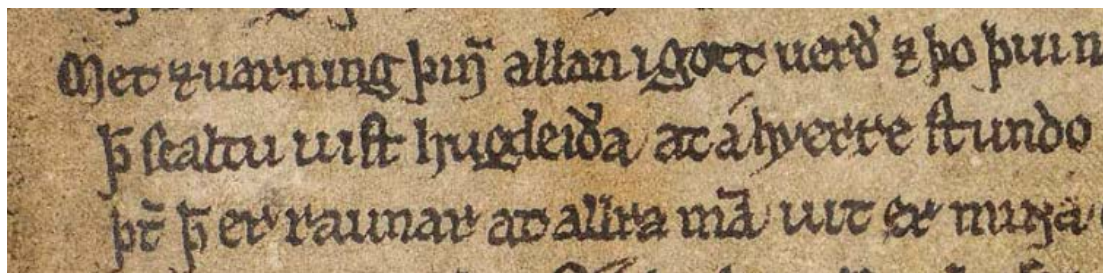 Met ⁊ uarning þin̄ allan i gott uerð ⁊ þo þui n
þ̄ scaltu uist hugleiða at á hverre stundo
þt̄ þ̄ er raunar at allra mā uit er minna